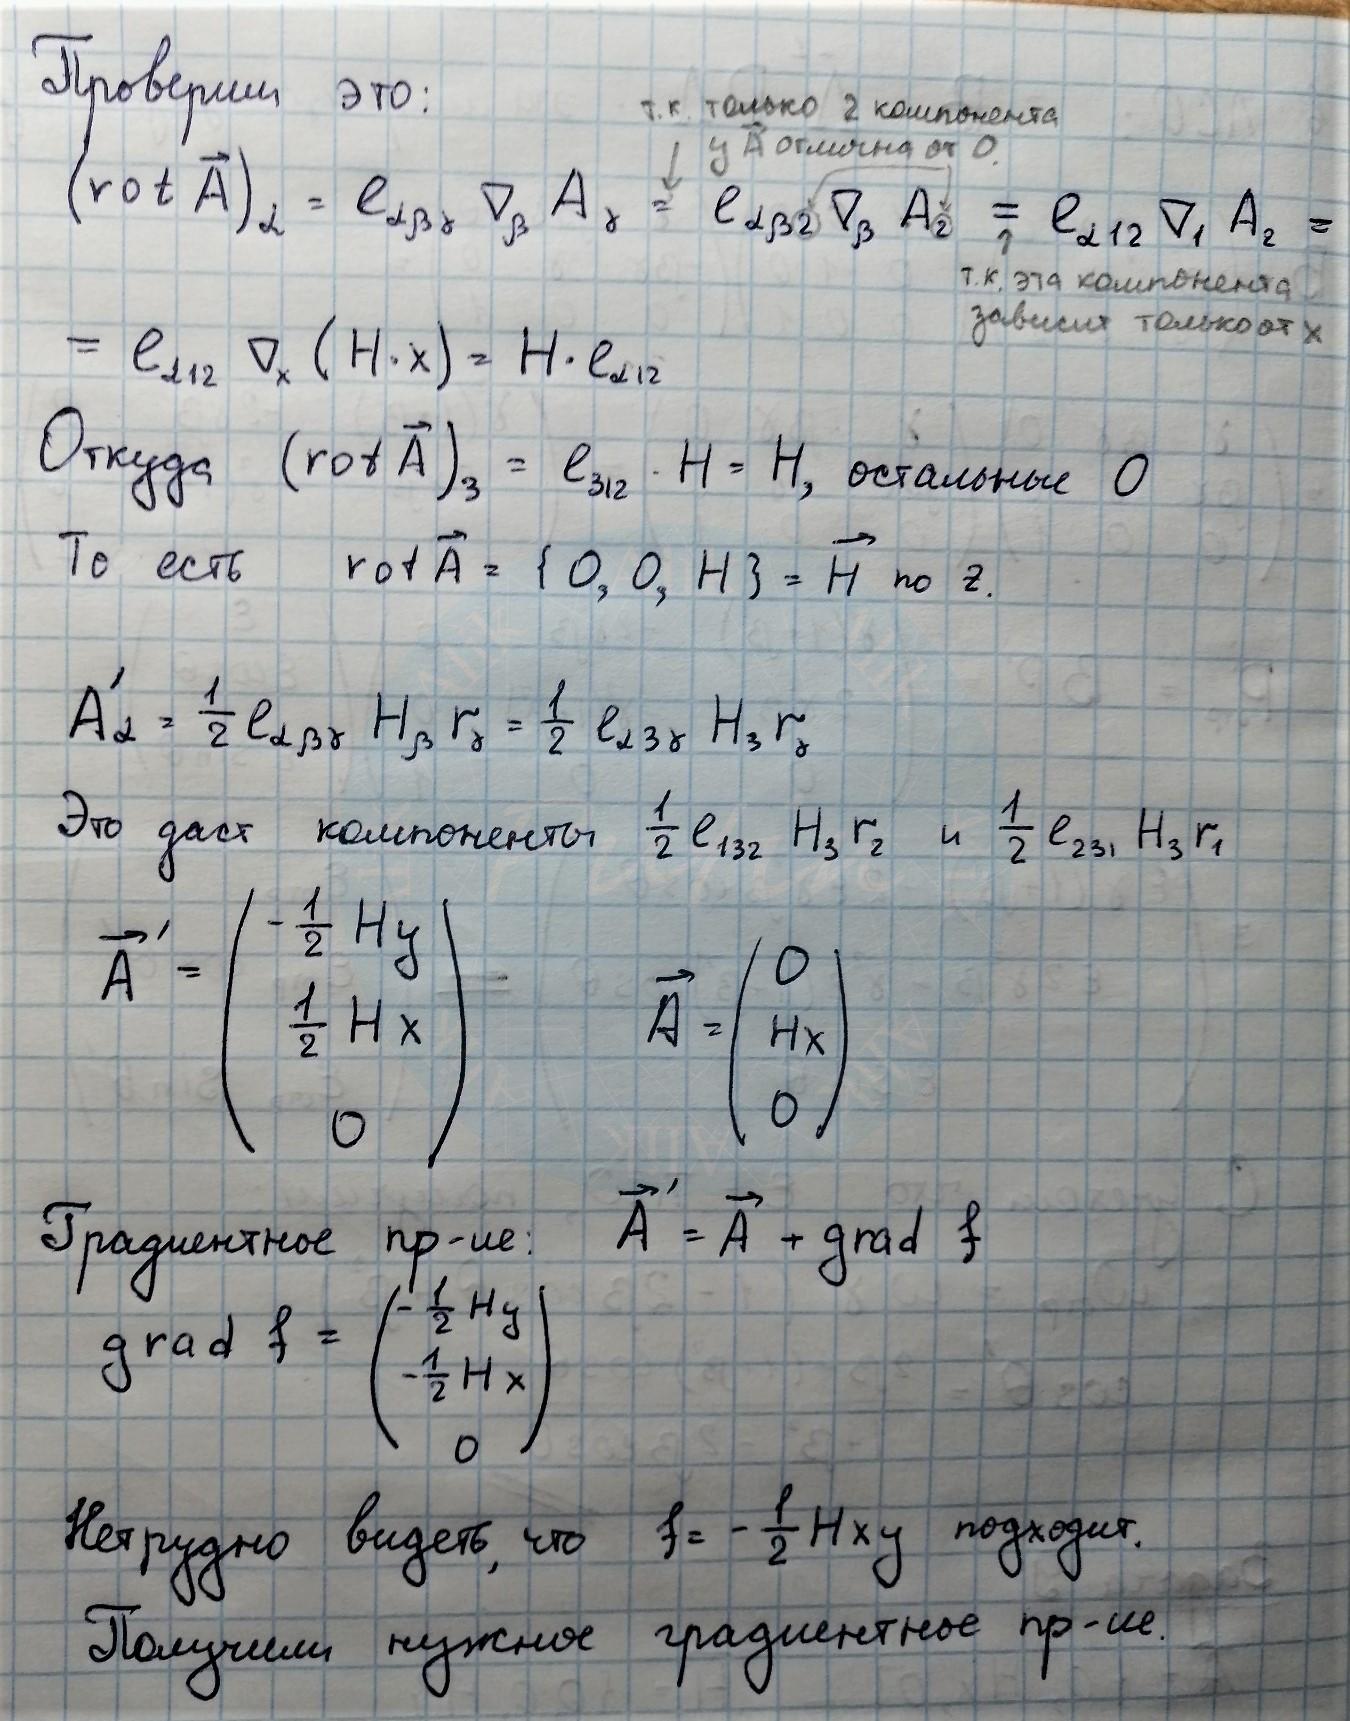 Проверим это:
т.к. только 2 компонента
у A⃗ отлична от 0.
(rot A⃗)_α = e_αβγ ∇_β A_γ = e_αβ2 ∇_β A_2 = e_α12 ∇_1 A_2 =
т.к. эта компонента
зависит только от x
= e_α12 ∇_x (H·x) = H·e_α12
Откуда (rot A⃗)_3 = e_312 · H = H, остальные 0
То есть rot A⃗ = {0, 0, H} = H⃗ по z.
A'_α = 1/2 e_αβγ H_β r_γ = 1/2 e_α3γ H_3 r_γ
Это даст компоненты 1/2 e_132 H_3 r_2 и 1/2 e_231 H_3 r_1
A⃗' = (-1/2 Hy, 1/2 Hx, 0) A⃗ = (0, Hx, 0)
Градиентное пр-ие: A⃗' = A⃗ + grad f
grad f = (-1/2 Hy, -1/2 Hx, 0)
Нетрудно видеть, что f = -1/2 Hxy подходит.
Получили нужное градиентное пр-ие.